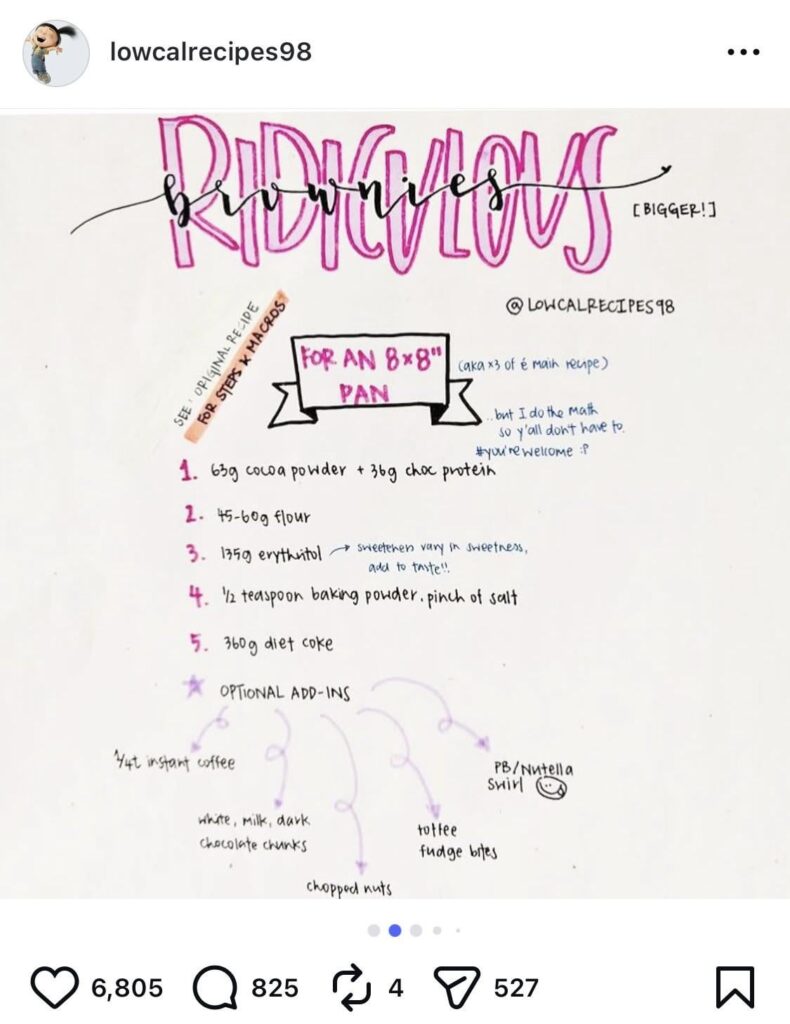 lowcalrecipes98
RIDICULOUS
brownies
[BIGGER!]
@LOWCALRECIPES98
SEE: ORIGINAL RECIPE
FOR STEPS & MACROS
FOR AN 8x8"
PAN
(aka x3 of é main recipe)
...but I do the math
so y'all don't have to.
#you're welcome :P
1. 63g cocoa powder + 36g choc protein
2. 45-60g flour
3. 135g erythritol → sweeteners vary in sweetness,
add to taste!!
4. 1/2 teaspoon baking powder. pinch of salt
5. 360g diet coke
OPTIONAL ADD-INS
1/4t instant coffee
white, milk, dark
chocolate chunks
chopped nuts
toffee
fudge bites
PB/Nutella
swirl
6,805 825 4 527